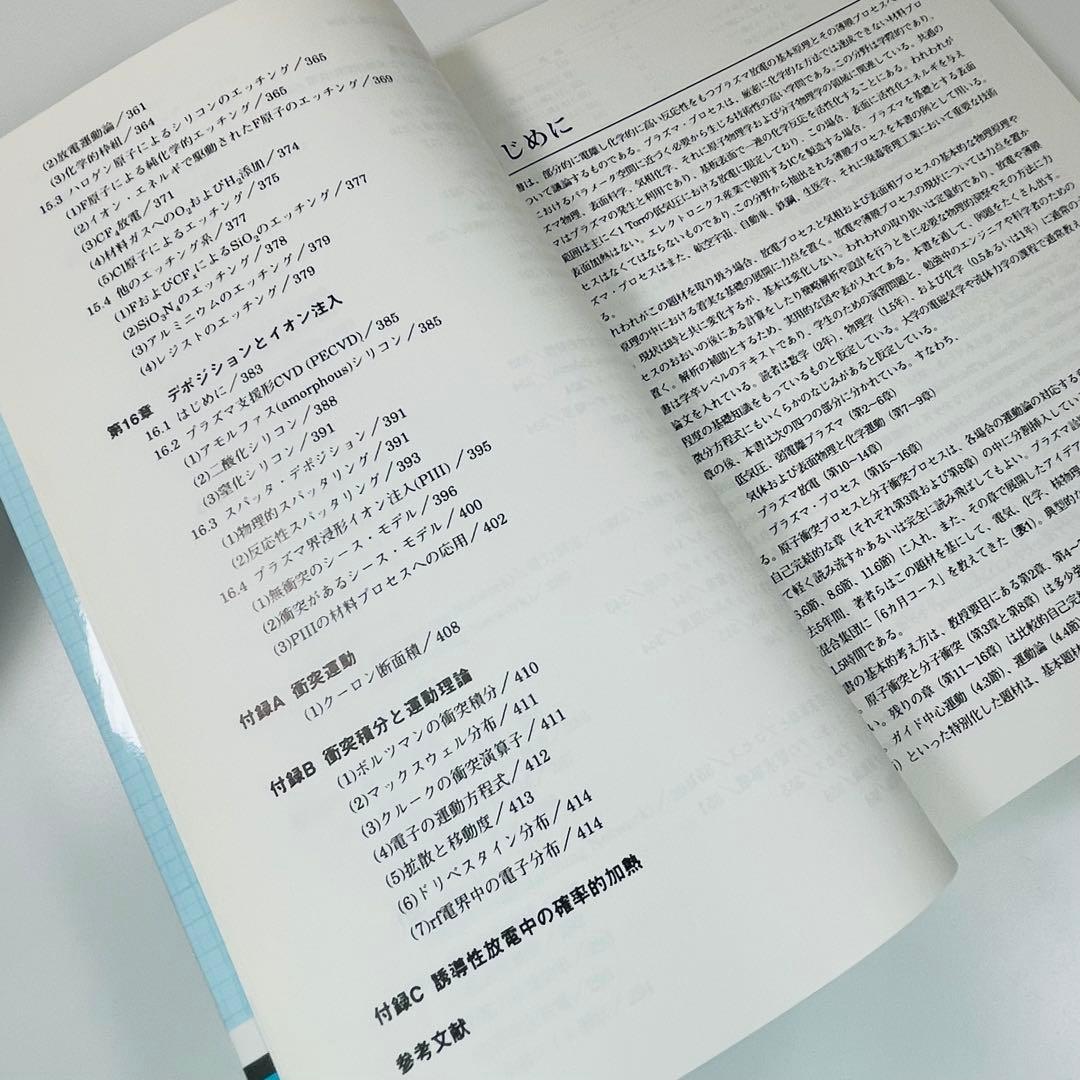 (2)放電運動論/361
(3)化学的枠組/364
15.3 ハロゲン原子によるシリコンのエッチング/365
(1)F原子による純化学的エッチング/365
(2)イオン・エネルギで駆動されたF原子のエッチング/369
(3)CF₄放電/371
(4)材料ガスへのO₂およびH₂添加/374
(5)Cl原子によるエッチング/375
15.4 他のエッチング系/377
(1)FおよびCF₄によるSiO₂のエッチング/377
(2)SiO₃N₄のエッチング/378
(3)アルミニウムのエッチング/379
(4)レジストのエッチング/379
第16章 デポジションとイオン注入
16.1 はじめに/383
16.2 プラズマ支援形CVD (PECVD)/385
(1)アモルファス(amorphous)シリコン/385
(2)二酸化シリコン/388
(3)窒化シリコン/391
16.3 スパッタ・デポジション/391
(1)物理的スパッタリング/391
(2)反応性スパッタリング/393
16.4 プラズマ界浸形イオン注入(PIII)/395
(1)無衝突のシース・モデル/396
(2)衝突があるシース・モデル/400
(3)PIIIの材料プロセスへの応用/402
付録A 衝突運動
(1)クーロン断面積/408
付録B 衝突積分と運動理論
(1)ボルツマンの衝突積分/410
(2)マックスウェル分布/411
(3)クルークの衝突演算子/411
(4)電子の運動方程式/412
(5)拡散と移動度/413
(6)ドリベスタイン分布/414
(7)rf電界中の電子分布/414
付録C 誘導性放電中の確率的加熱
参考文献
じめに
書は、部分的に電離し化学的に高い反応性をもつプラズマ放電の基本原理とその薄膜プロセスへ
ついて議論するものである。プラズマ・プロセスは、厳密に化学的な方法では達成できない材料プロ
におけるパラメータ空間に近づく必要から生じる技術性の高い学問である。この分野は学際的であり、
ズマ物理、表面科学、気相化学、それに原子物理学および分子物理学の領域に関連している。共通の
マはプラズマの発生と利用であり、基板表面で一連の化学反応を活性化することにある。われわれが
範囲は主に<1 Torrの低気圧における放電に限定しており、この場合、表面に活性化エネルギを与え
表面加熱はない。エレクトロニクス産業で使用するICを製造する場合、プラズマを基礎とする表面
はなくてはならないものであり、この分野から抽出される薄膜プロセスを本書の例として用いる。
ズマ・プロセスはまた、航空宇宙、自動車、鉄鋼、生医学、それに廃毒管理工業において重要な技術
れわれがこの題材を取り扱う場合、放電プロセスと気相および表面相プロセスの基本的な物理原理や
原理の中における着実な基礎の展開に力点を置く。放電や薄膜プロセスの現状については力点を置か
現状は時と共に変化するが、基本は変化しない。われわれの取り扱いは定量的であり、放電や薄膜
セスのおおいの後にある計算をしたり簡略解析や設計を行うときに必要な物理的洞察やその方法に力
置く。解析の補助とするため、実用的な図や表が入れてある。本書を通して、例題をたくさん出す。
書は学卒レベルのテキストであり、学生のための演習問題と、勉強中のエンジニアや科学者のための
論文を入れている。読者は数学（2年）、物理学（1.5年）、および化学（0.5あるいは1年）に通常の
程度の基礎知識をもっているものと仮定している。大学の電磁気学や流体力学の課程で通常教え
微分方程式にもいくらかのなじみがあると仮定している。
章の後、本書は次の四つの部分に分かれている。すなわち、
低気圧、弱電離プラズマ（第2〜6章）
気体および表面物理と化学運動（第7〜9章）
プラズマ放電（第10〜14章）
プラズマ・プロセス（第15〜16章）
る。原子衝突プロセスと分子衝突プロセスは、各場合の運動論の対応する章
自己完結的な章（それぞれ第3章および第8章）の中に分割挿入してい
て軽く読み流すかあるいは完全に読み飛ばしてもよい。プラズマ診
3.6節、8.6節、11.6節）に入れ、また、その章で展開したアイデア
去5年間、著者らはこの題材を基にして、電気、化学、核物理
混合集団に「6カ月コース」を教えてきた（表1）。典型的な
1.5時間である。
書の基本的考え方は、教授要目にある第2章、第4〜
。原子衝突と分子衝突（第3章と第8章）は多少
い。残りの章（第11〜16章）は比較的自己完
。ガイド中心運動（4.3節）、運動論（4.4節
）といった特別化した題材は、基本題材